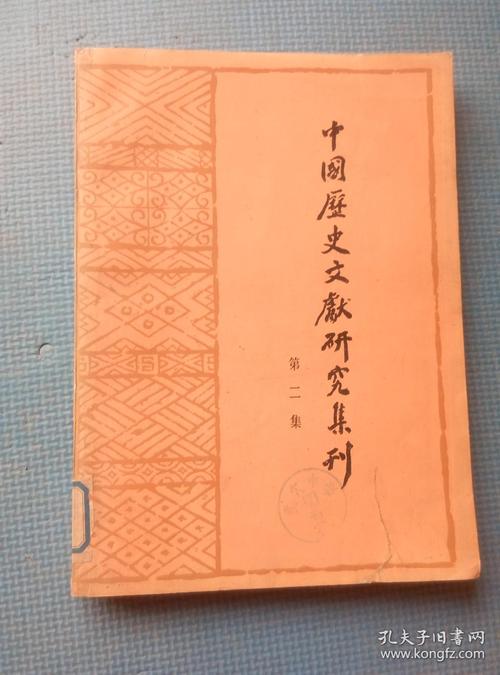 中國歷史文獻研究集刊
第二集
孔夫子旧书网
www.kongfz.com